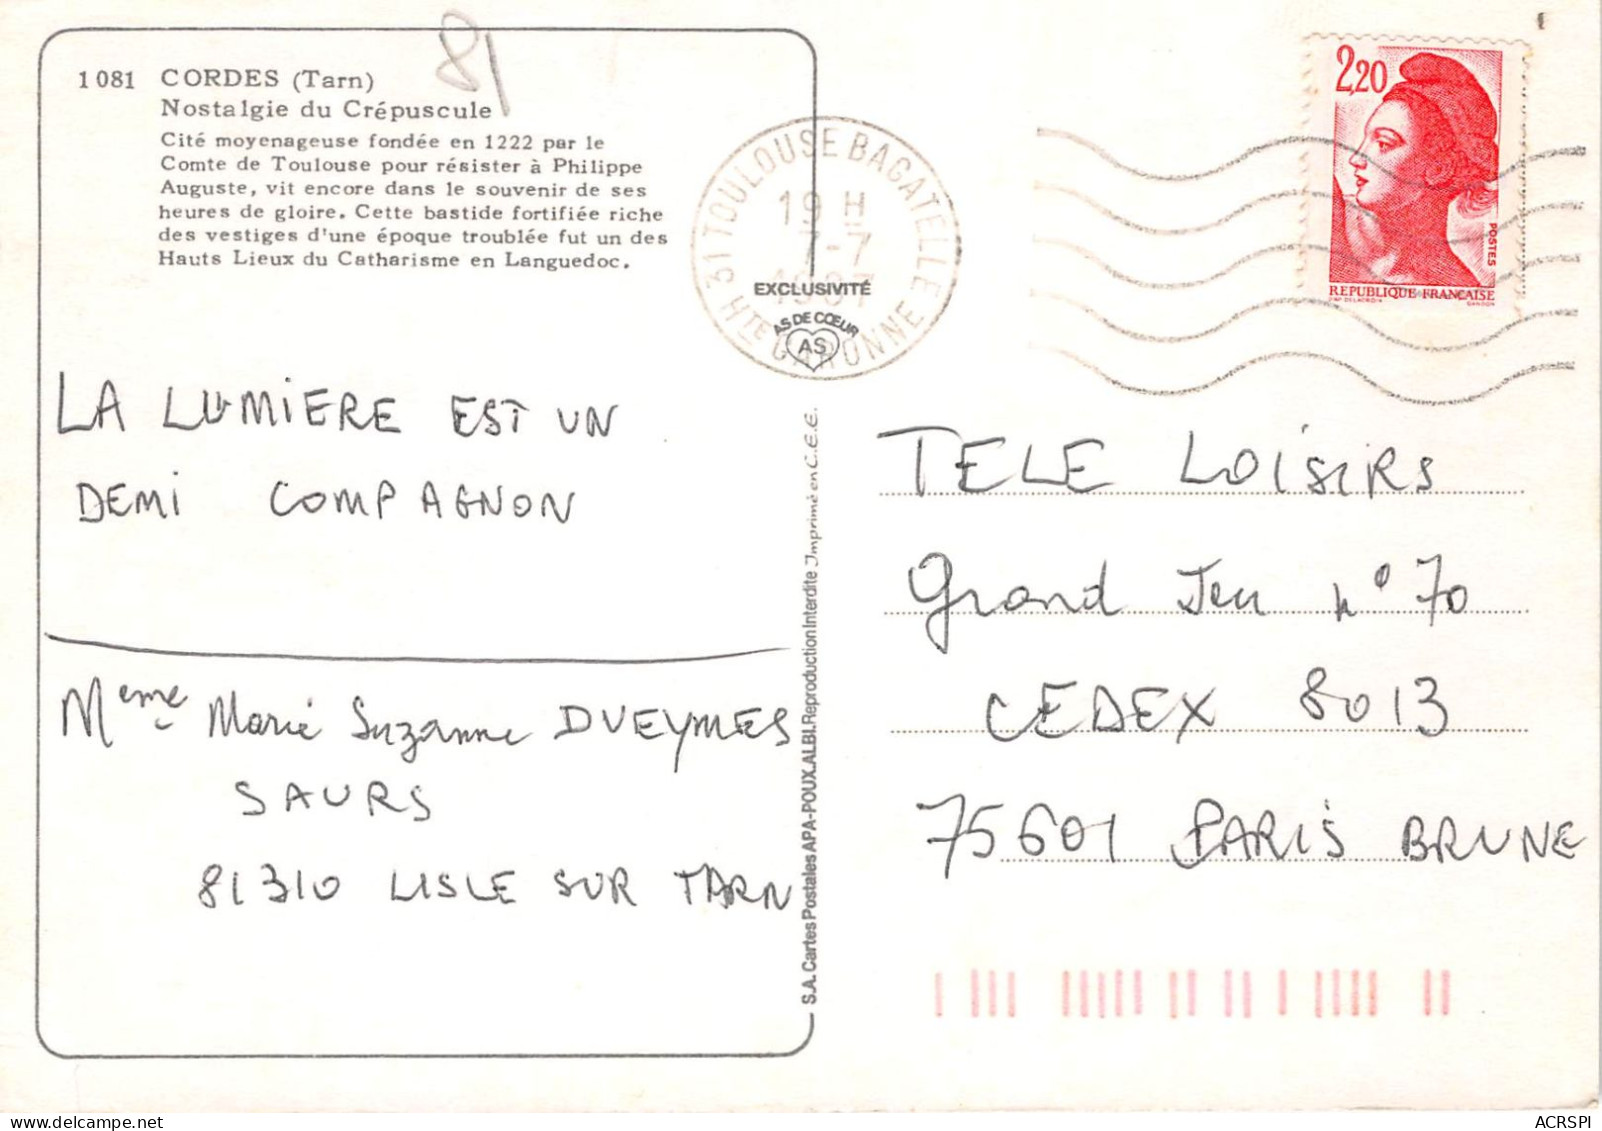 81
1081 CORDES (Tarn)
Nostalgie du Crépuscule
Cité moyenageuse fondée en 1222 par le
Comte de Toulouse pour résister à Philippe
Auguste, vit encore dans le souvenir de ses
heures de gloire. Cette bastide fortifiée riche
des vestiges d'une époque troublée fut un des
Hauts Lieux du Catharisme en Languedoc.
31 TOULOUSE BAGATELLE
19 H
7-7
1987
HTE GARONNE
EXCLUSIVITÉ
AS DE CŒUR
AS
2,20
POSTES
REPUBLIQUE FRANÇAISE
D'AP. DELACROIX GANDON
LA LUMIERE EST UN
DEMI COMPAGNON
Meme Marie Suzanne DUEYMES
SAURS
81310 LISLE SUR TARN
S.A. Cartes Postales APA-POUX.ALBI.Reproduction Interdite Imprimé en C.E.E.
TELE LOISIRS
Grand Jeu n° 70
CEDEX 8013
75601 PARIS BRUNE
ACRSPI